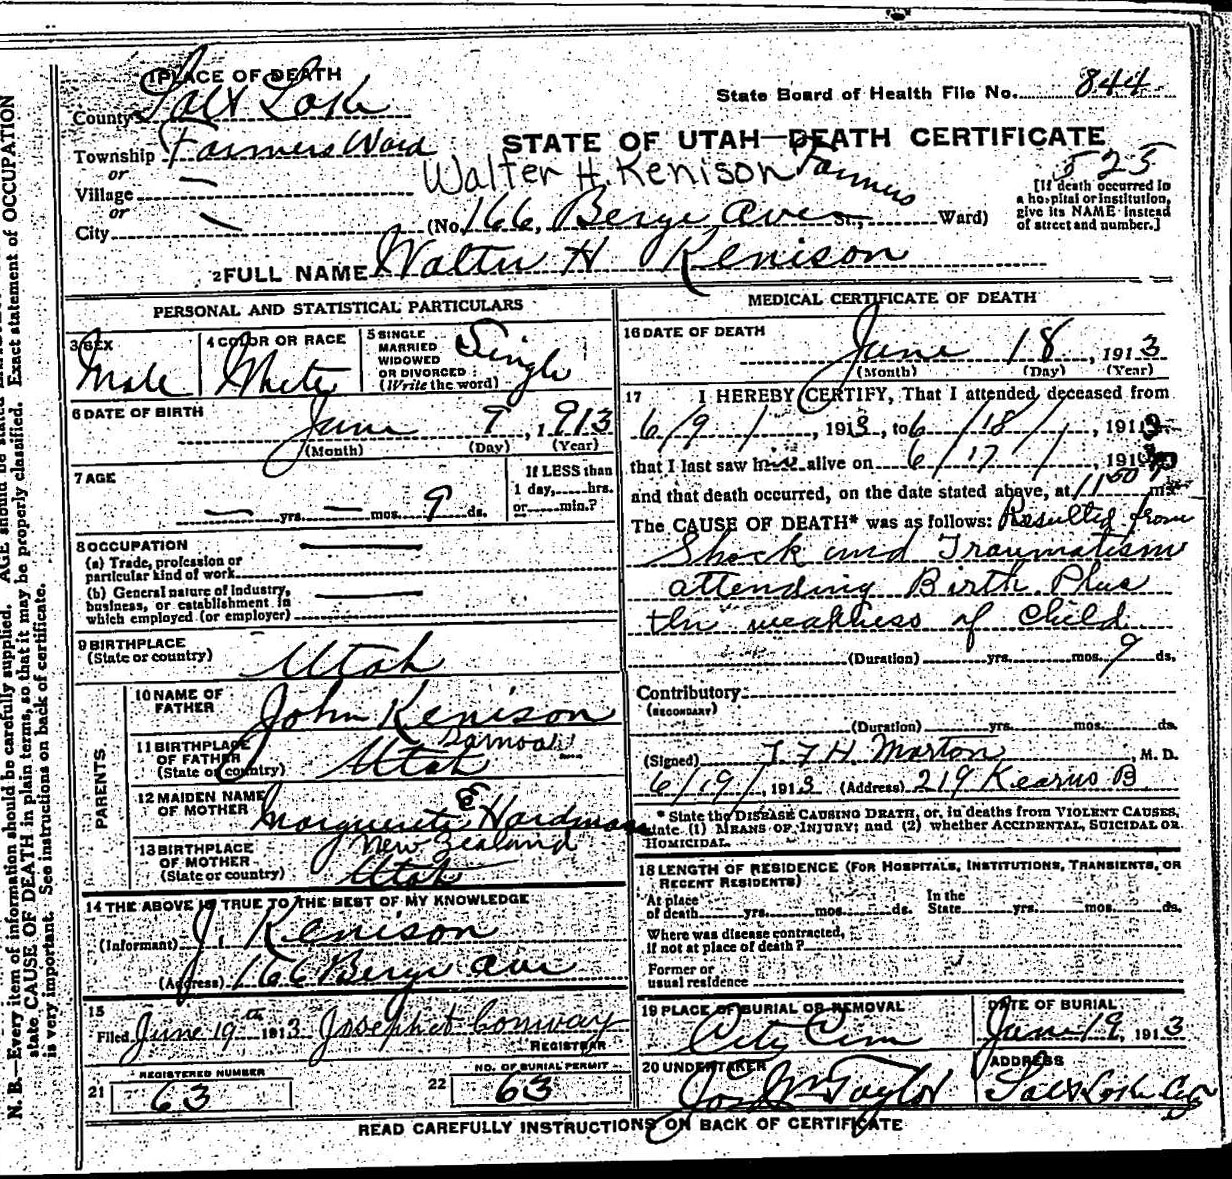 1 PLACE OF DEATH
County Salt Lake
State Board of Health File No. 844
Township Farmers Ward
STATE OF UTAH—DEATH CERTIFICATE
or
Village —
Walter H. Kenison Farmers
525
[If death occurred in a hospital or institution, give its NAME instead of street and number.]
or
City
(No. 166, Berye Ave St., Ward)
2 FULL NAME Walter H Kenison
PERSONAL AND STATISTICAL PARTICULARS
3 SEX Male
4 COLOR OR RACE White
5 SINGLE MARRIED WIDOWED OR DIVORCED (Write the word) Single
6 DATE OF BIRTH
June 9, 1913
(Month) (Day) (Year)
7 AGE
— yrs. — mos. 9 ds.
If LESS than 1 day, hrs. or min.?
8 OCCUPATION
(a) Trade, profession or particular kind of work
(b) General nature of industry, business, or establishment in which employed (or employer)
9 BIRTHPLACE (State or country) Utah
PARENTS
10 NAME OF FATHER John Kenison
11 BIRTHPLACE OF FATHER (State or country) Utah
12 MAIDEN NAME OF MOTHER Marguerite E Hardman
13 BIRTHPLACE OF MOTHER (State or country) New Zealand Utah
14 THE ABOVE IS TRUE TO THE BEST OF MY KNOWLEDGE
(Informant) J. Kenison
(Address) 166 Berye Ave
15
Filed June 19th 1913 Joseph Conway
REGISTRAR
REGISTERED NUMBER
21 63
NO. OF BURIAL PERMIT
22 63
MEDICAL CERTIFICATE OF DEATH
16 DATE OF DEATH
June 18, 1913
(Month) (Day) (Year)
17 I HEREBY CERTIFY, That I attended deceased from
6/9/, 1913, to 6/18/, 1913
that I last saw him alive on 6/17/, 191
and that death occurred, on the date stated above, at 11 50 P m.
The CAUSE OF DEATH* was as follows: Resulted from
Shock and Traumatism
attending Birth Plus
the weakness of Child
(Duration) yrs. mos. 9 ds.
Contributory
(SECONDARY)
(Duration) yrs. mos. ds.
(Signed) T F H Morton M. D.
6/19/, 1913 (Address) 219 Kearns B
* State the DISEASE CAUSING DEATH, or, in deaths from VIOLENT CAUSES,
state (1) MEANS OF INJURY; and (2) whether ACCIDENTAL, SUICIDAL OR
HOMICIDAL.
18 LENGTH OF RESIDENCE (FOR HOSPITALS, INSTITUTIONS, TRANSIENTS, OR
RECENT RESIDENTS)
At place of death yrs. mos. ds. In the State yrs. mos. ds.
Where was disease contracted, if not at place of death?
Former or usual residence
19 PLACE OF BURIAL OR REMOVAL City Cem
DATE OF BURIAL June 19, 1913
20 UNDERTAKER Jos Wm Taylor
ADDRESS Salt Lake Cy
READ CAREFULLY INSTRUCTIONS ON BACK OF CERTIFICATE
N. B.—Every item of information should be carefully supplied. AGE should be stated
state CAUSE OF DEATH in plain terms, so that it may be properly classified. Exact statement of OCCUPATION
is very important. See instructions on back of certificate.